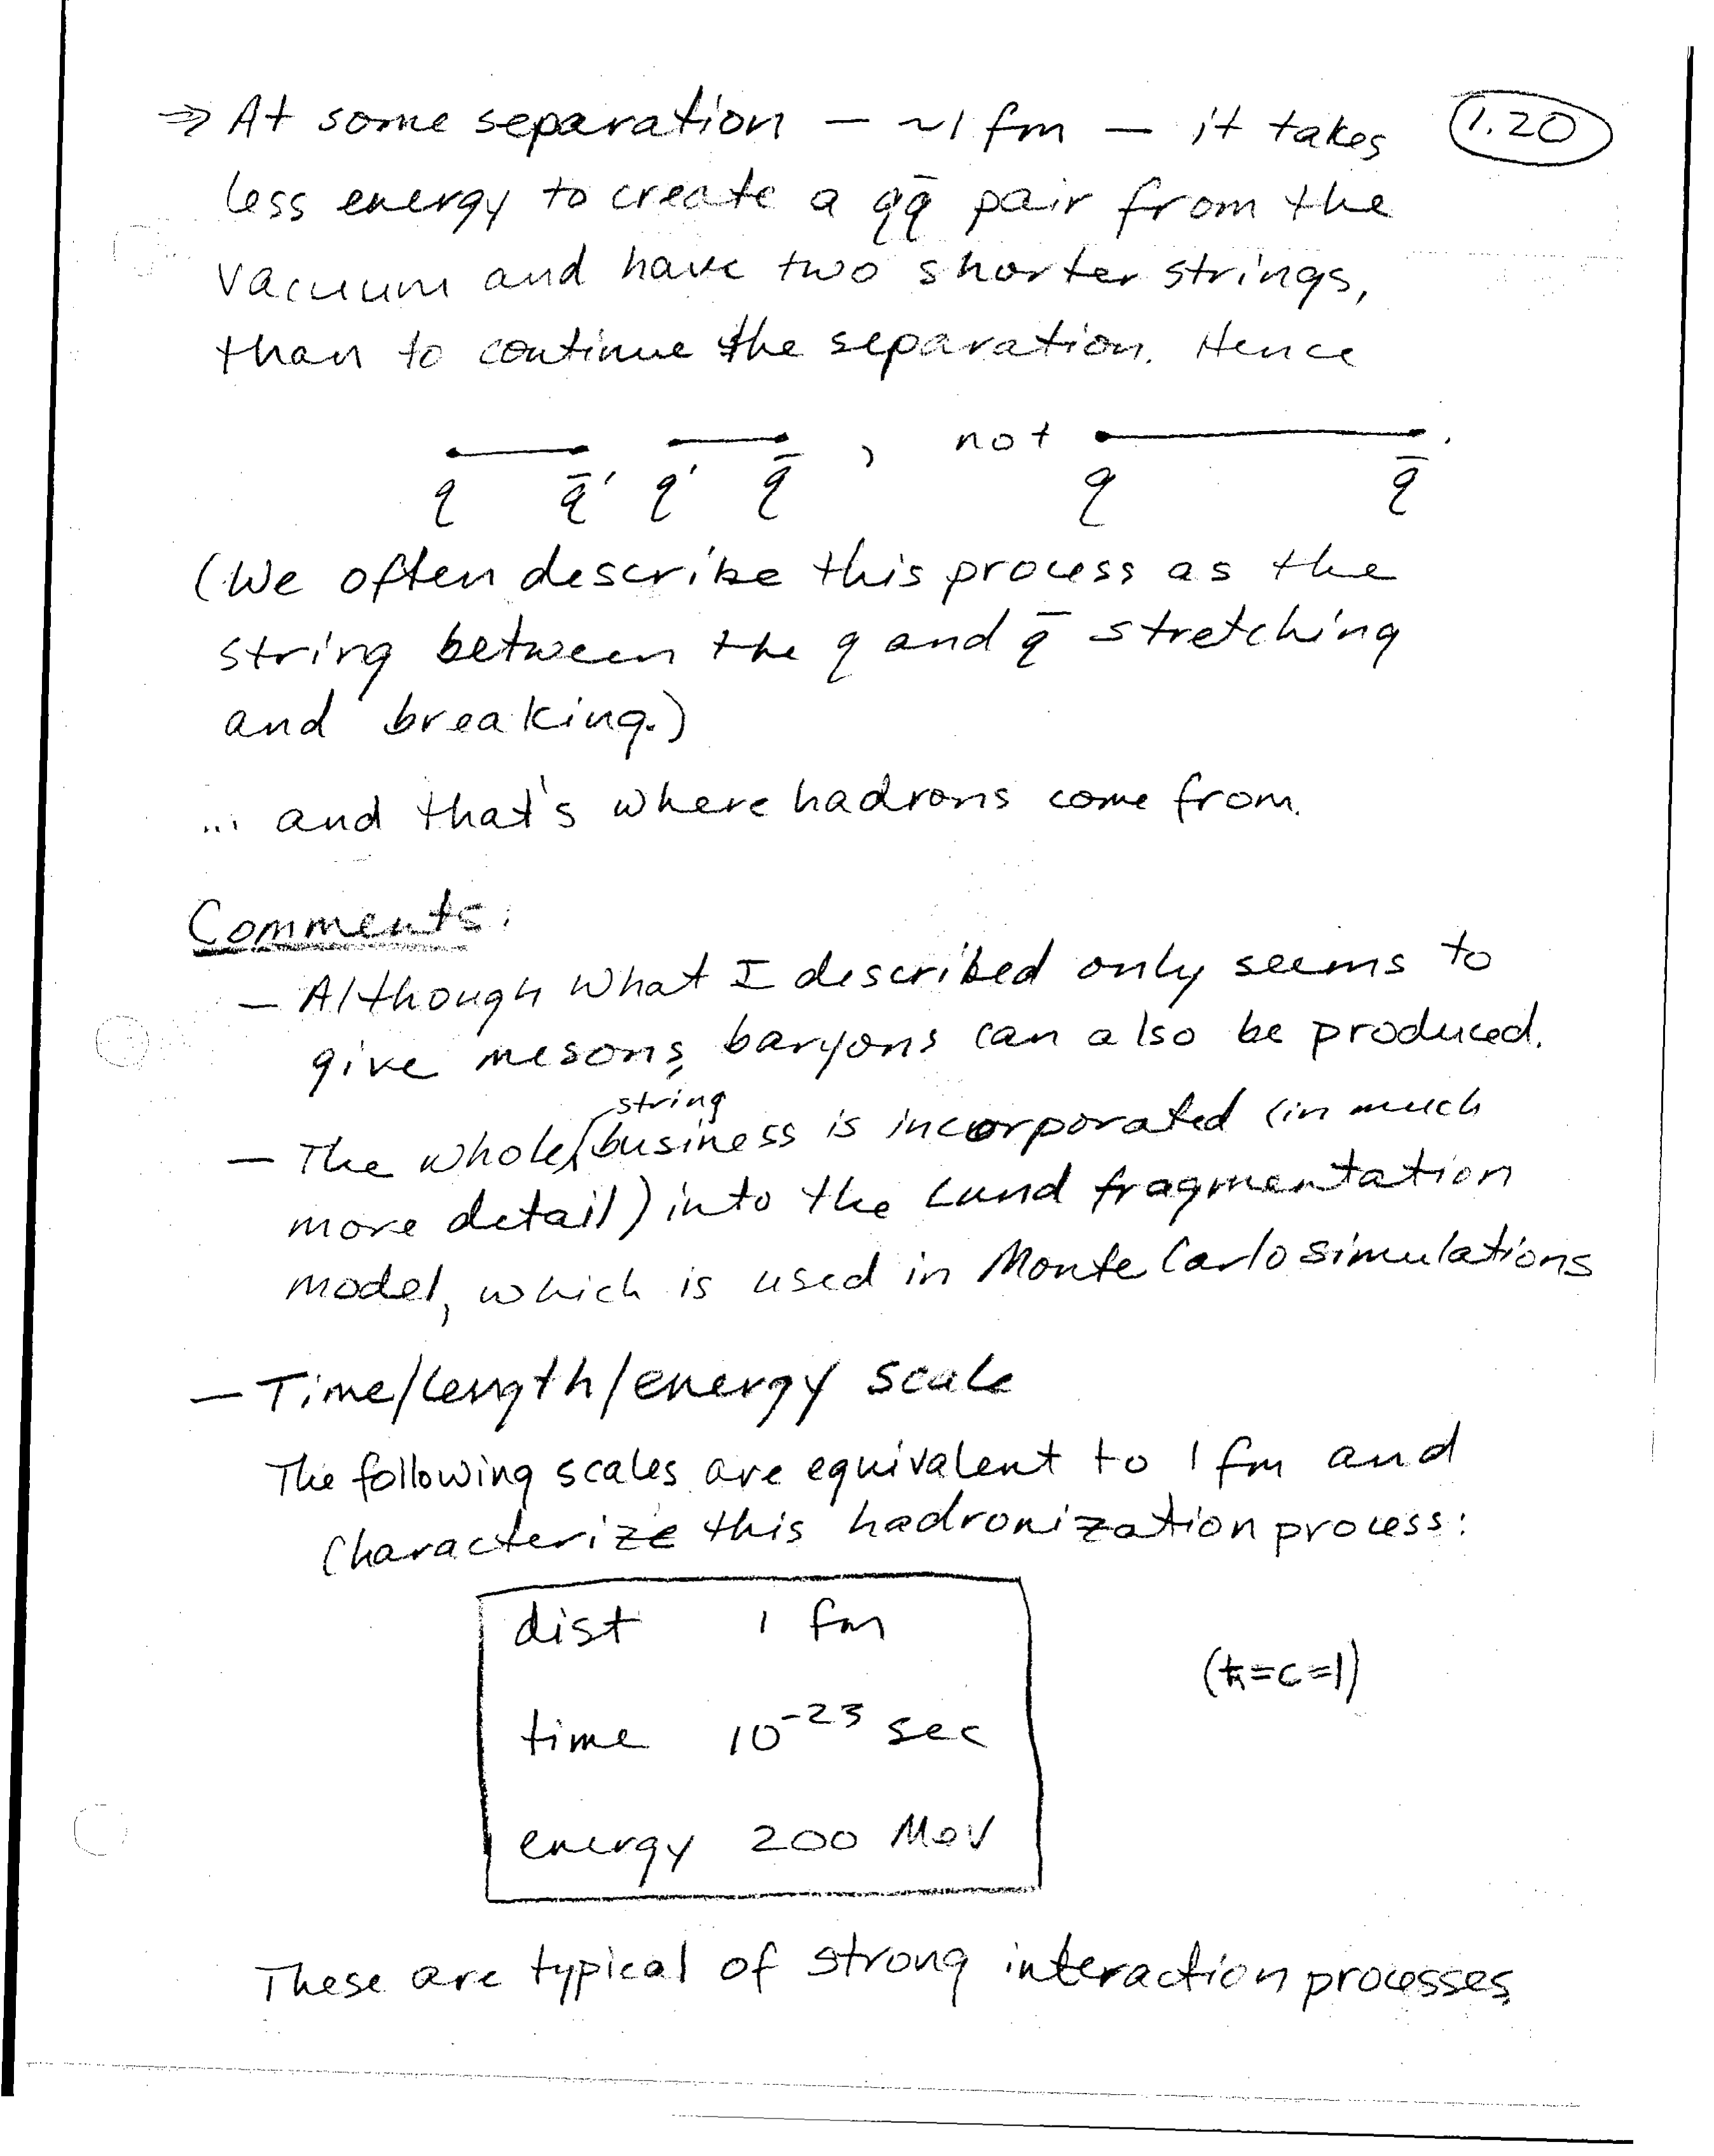 ⇒ At some separation – ~1 fm – it takes
1.20
less energy to create a qq̄ pair from the
vacuum and have two shorter strings,
than to continue the separation. Hence
, not .
q q̄' q' q̄ q q̄
(We often describe this process as the
string between the q and q̄ stretching
and breaking.)
... and that's where hadrons come from.
Comments:
– Although what I described only seems to
give mesons, baryons can also be produced.
– The whole string business is incorporated (in much
more detail) into the Lund fragmentation
model, which is used in Monte Carlo simulations
– Time/length/energy scale
The following scales are equivalent to 1 fm and
characterize this hadronization process:
dist 1 fm
(ħ=c=1)
time 10⁻²³ sec
energy 200 MeV
These are typical of strong interaction processes